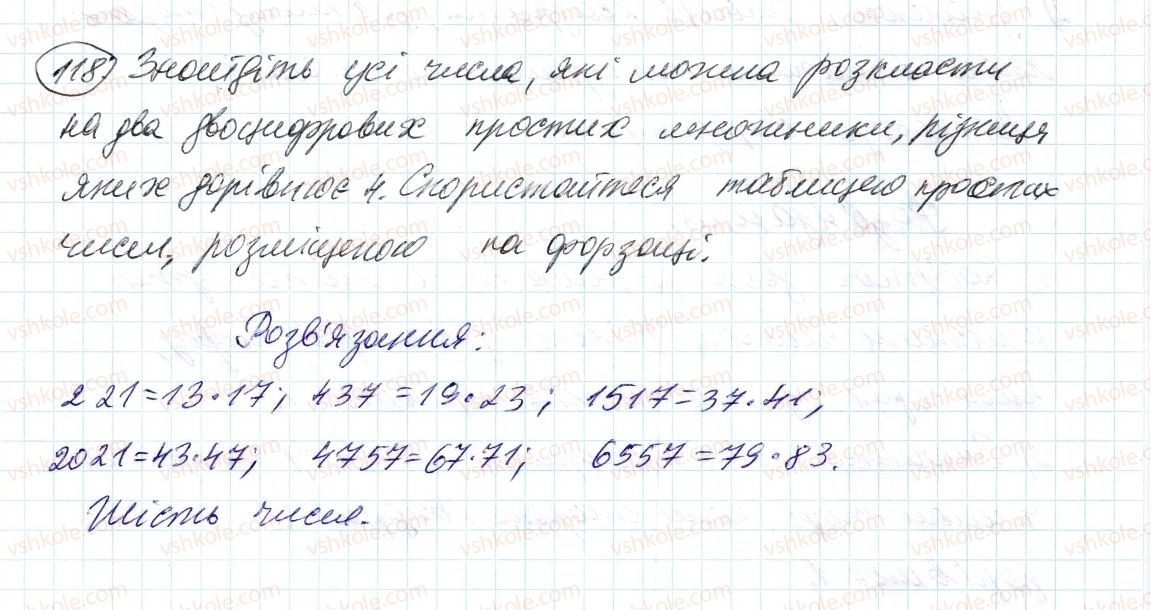 118) Знайдіть усі числа, які можна розкласти
на два двоцифрових простих множники, різниця
яких дорівнює 4. Скористайтеся таблицею простих
чисел, розміщеною на форзаці.
Розв'язання:
221=13·17; 437=19·23; 1517=37·41;
2021=43·47; 4757=67·71; 6557=79·83.
Шість чисел.